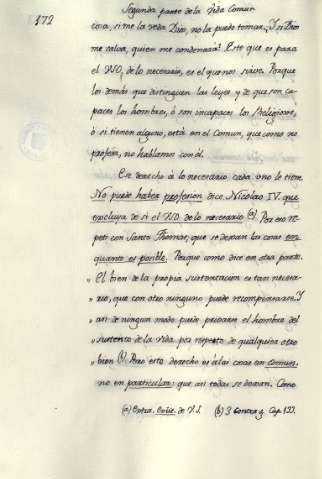 172
Segunda parte de la Vida Comun
cosa, si me la veda Dios, no la puedo tomar. Y si Dios
me salva, quien me condenará? Este que es para
el uso, de lo necesario, es el que nos sirve. Porque
los demás que distinguen las leyes, y de que son ca-
paces los hombres, ó son incapaces los Religiosos,
ó si tienen alguno, está en el Comun, que como no
profesa, no hablamos con él.
Ese derecho á lo necesario cada uno le tiene.
No puede haber profesion dice Nicolao IV. que
excluya de si el uso de lo necesario (a). Por eso re-
peti con Santo Thomas, que se dexan las cosas en
quanto es posible. Porque como dice en otra parte
„ El bien de la propia sustentacion es tan necesa-
„ rio, que con otro ninguno puede recompensarse. Y
„ asi de ningun modo puede privarse el hombre del
„ sustento de la vida por respeto de qualquiera otro
„ bien (b). Pero este derecho es á las cosas en comun,
no en particular: que asi todas se dexan. Como
(a) Extra. Exiit. de V. S. (b) 3 Contra g. Cap. 131.